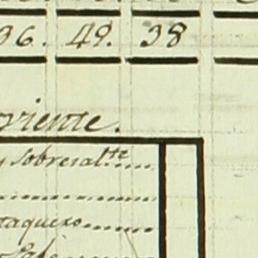 36. 49. 38
riente.
y Sobresalte
taquero